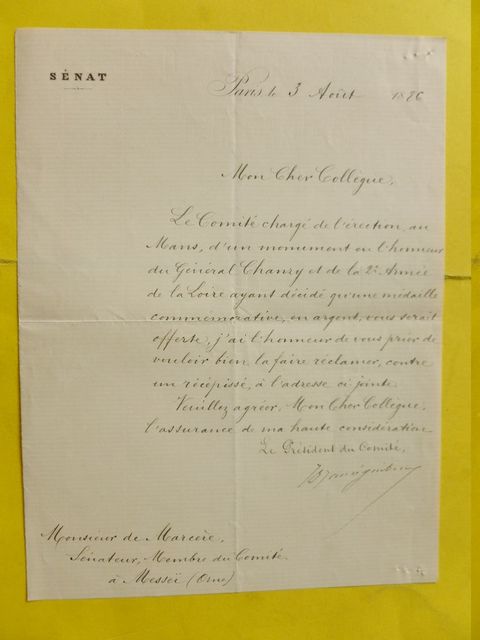 SÉNAT
Paris, le 3 Août 1886
Mon Cher Collègue,
Le Comité chargé de l'érection, au
Mans, d'un monument en l'honneur
du Général Chanzy et de la 2e Armée
de la Loire ayant décidé qu'une médaille
commémorative, en argent, vous serait
offerte, j'ai l'honneur de vous prier de
vouloir bien la faire réclamer, contre
un récépissé, à l'adresse ci jointe.
Veuillez agréer, Mon Cher Collègue,
l'assurance de ma haute considération
Le Président du Comité,
Monsieur de Marcère,
Sénateur, Membre du Comité
à Messei (Orne)